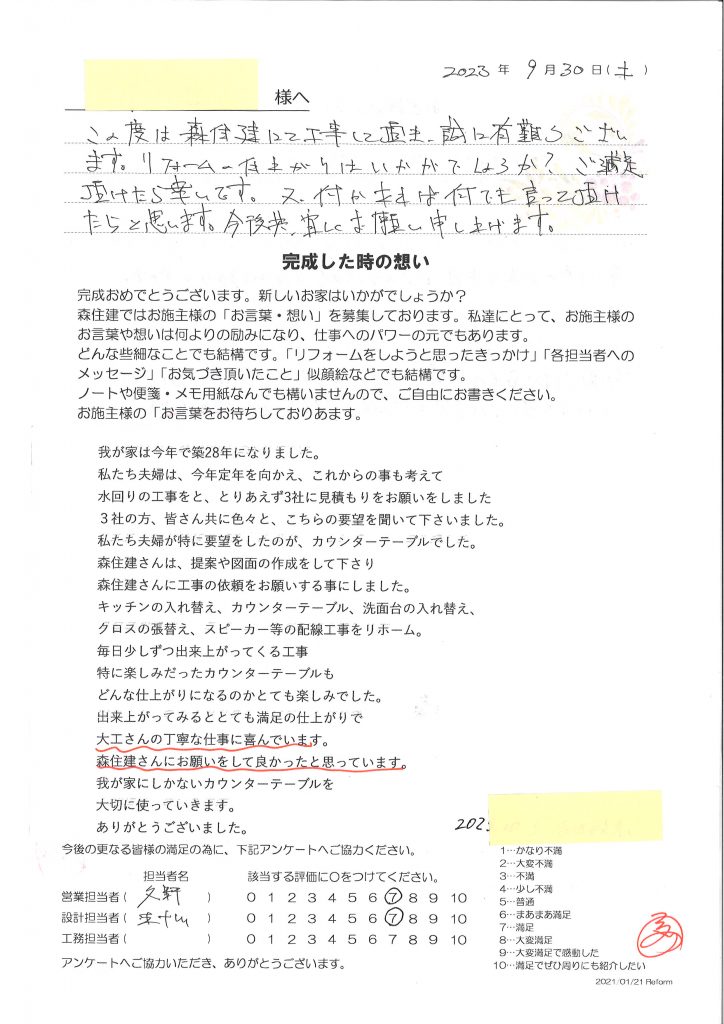 2023 年 9 月 30 日(土)
様へ
この度は森住建にて工事して頂き、誠に有難うござい
ます。リフォームの仕上がりはいかがでしょうか? ご満足
頂けたら幸いです。又、何か有れば何でも言って頂け
たらと思います。今後共、宜しくお願い申し上げます。
完成した時の想い
完成おめでとうございます。新しいお家はいかがでしょうか？
森住建ではお施主様の「お言葉・想い」を募集しております。私達にとって、お施主様の
お言葉や想いは何よりの励みになり、仕事へのパワーの元でもあります。
どんな些細なことでも結構です。「リフォームをしようと思ったきっかけ」「各担当者への
メッセージ」「お気づき頂いたこと」似顔絵などでも結構です。
ノートや便箋・メモ用紙なんでも構いませんので、ご自由にお書きください。
お施主様の「お言葉をお待ちしておりあます。
我が家は今年で築28年になりました。
私たち夫婦は、今年定年を向かえ、これからの事も考えて
水回りの工事をと、とりあえず3社に見積もりをお願いをしました
３社の方、皆さん共に色々と、こちらの要望を聞いて下さいました。
私たち夫婦が特に要望をしたのが、カウンターテーブルでした。
森住建さんは、提案や図面の作成をして下さり
森住建さんに工事の依頼をお願いする事にしました。
キッチンの入れ替え、カウンターテーブル、洗面台の入れ替え、
クロスの張替え、スピーカー等の配線工事をリホーム。
毎日少しずつ出来上がってくる工事
特に楽しみだったカウンターテーブルも
どんな仕上がりになるのかとても楽しみでした。
出来上がってみるととても満足の仕上がりで
大工さんの丁寧な仕事に喜んでいます。
森住建さんにお願いをして良かったと思っています。
我が家にしかないカウンターテーブルを
大切に使っていきます。
ありがとうございました。
2023
今後の更なる皆様の満足の為に、下記アンケートへご協力ください。
担当者名 該当する評価に〇をつけてください。
営業担当者( 久軒 ) 0 1 2 3 4 5 6 7 8 9 10
設計担当者( ) 0 1 2 3 4 5 6 7 8 9 10
工務担当者( ) 0 1 2 3 4 5 6 7 8 9 10
アンケートへご協力いただき、ありがとうございます。
1…かなり不満
2…大変不満
3…不満
4…少し不満
5…普通
6…まあまあ満足
7…満足
8…大変満足
9…大変満足で感動した
10…満足でぜひ周りにも紹介したい
2021/01/21 Reform